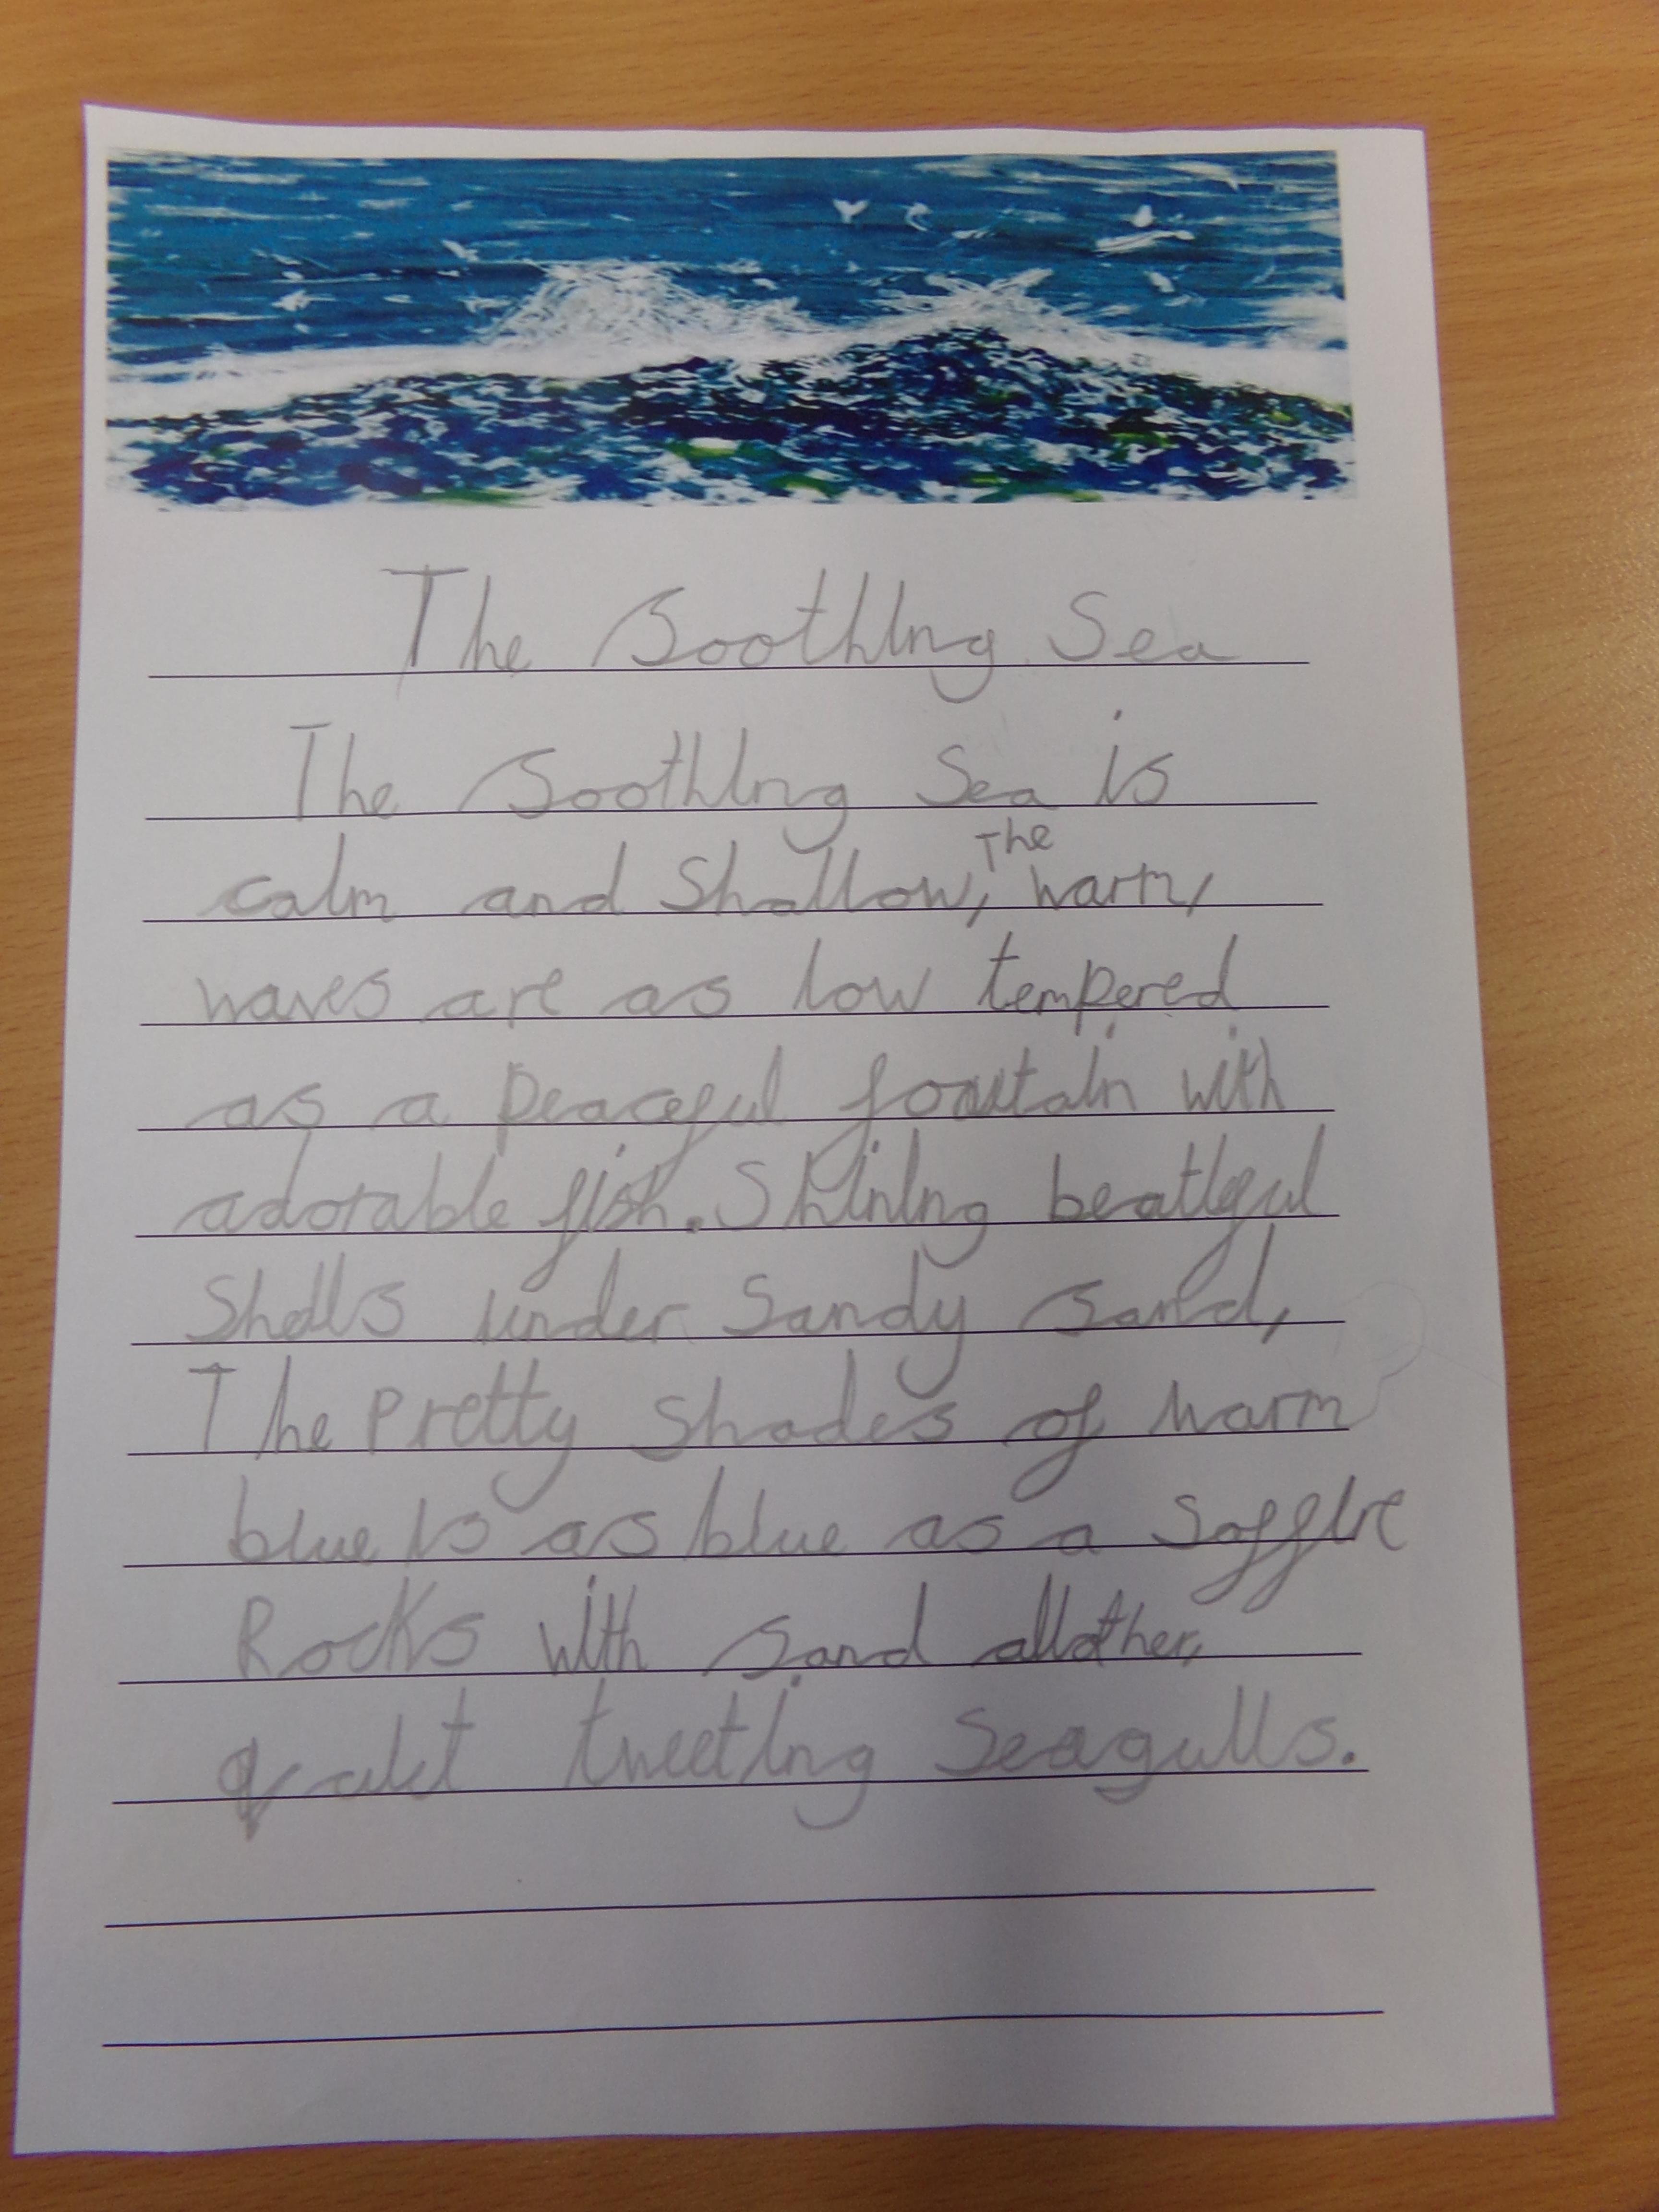 The Soothing Sea
The Soothing Sea is
calm and Shallow, The warm,
waves are as low tempered
as a peaceful fountain with
adorable fish. Shining beatiful
Shells under Sandy sand,
The Pretty Shades of warm
blue is as blue as a Saffire
Rocks with sand allother,
tweeting Seagulls.